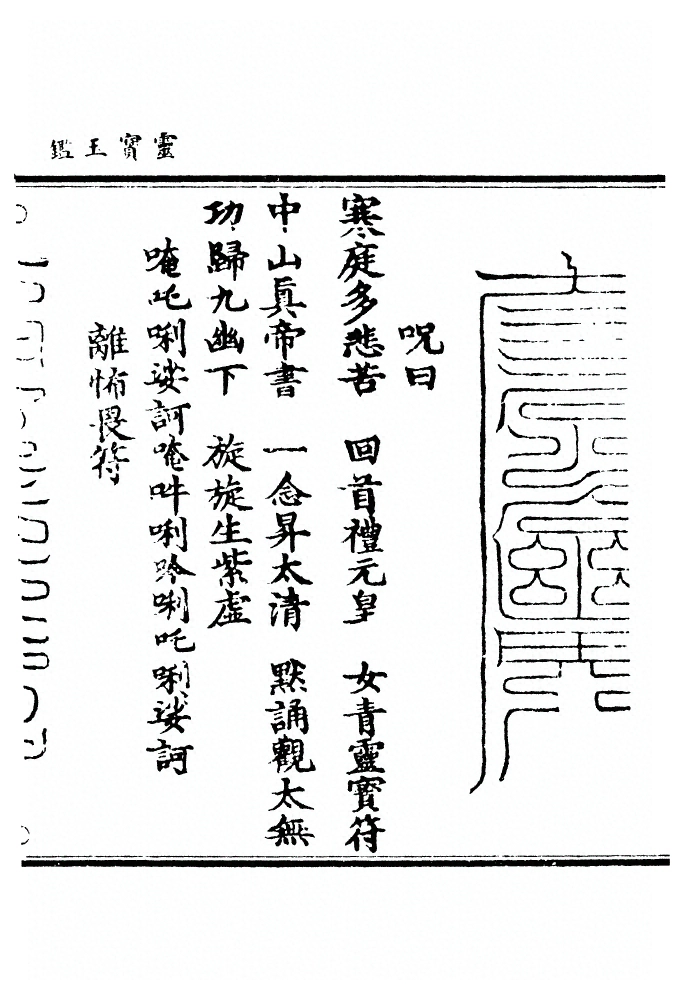 靈寶玉鑑
呪曰
寒庭多悲苦　回首禮元皇　女青靈寶符
中山真帝書　一念昇太清　默誦觀太無
功歸九幽下　旋旋生紫虛
唵吒唎娑訶唵吽唎唥唎吒唎娑訶
離怖畏符